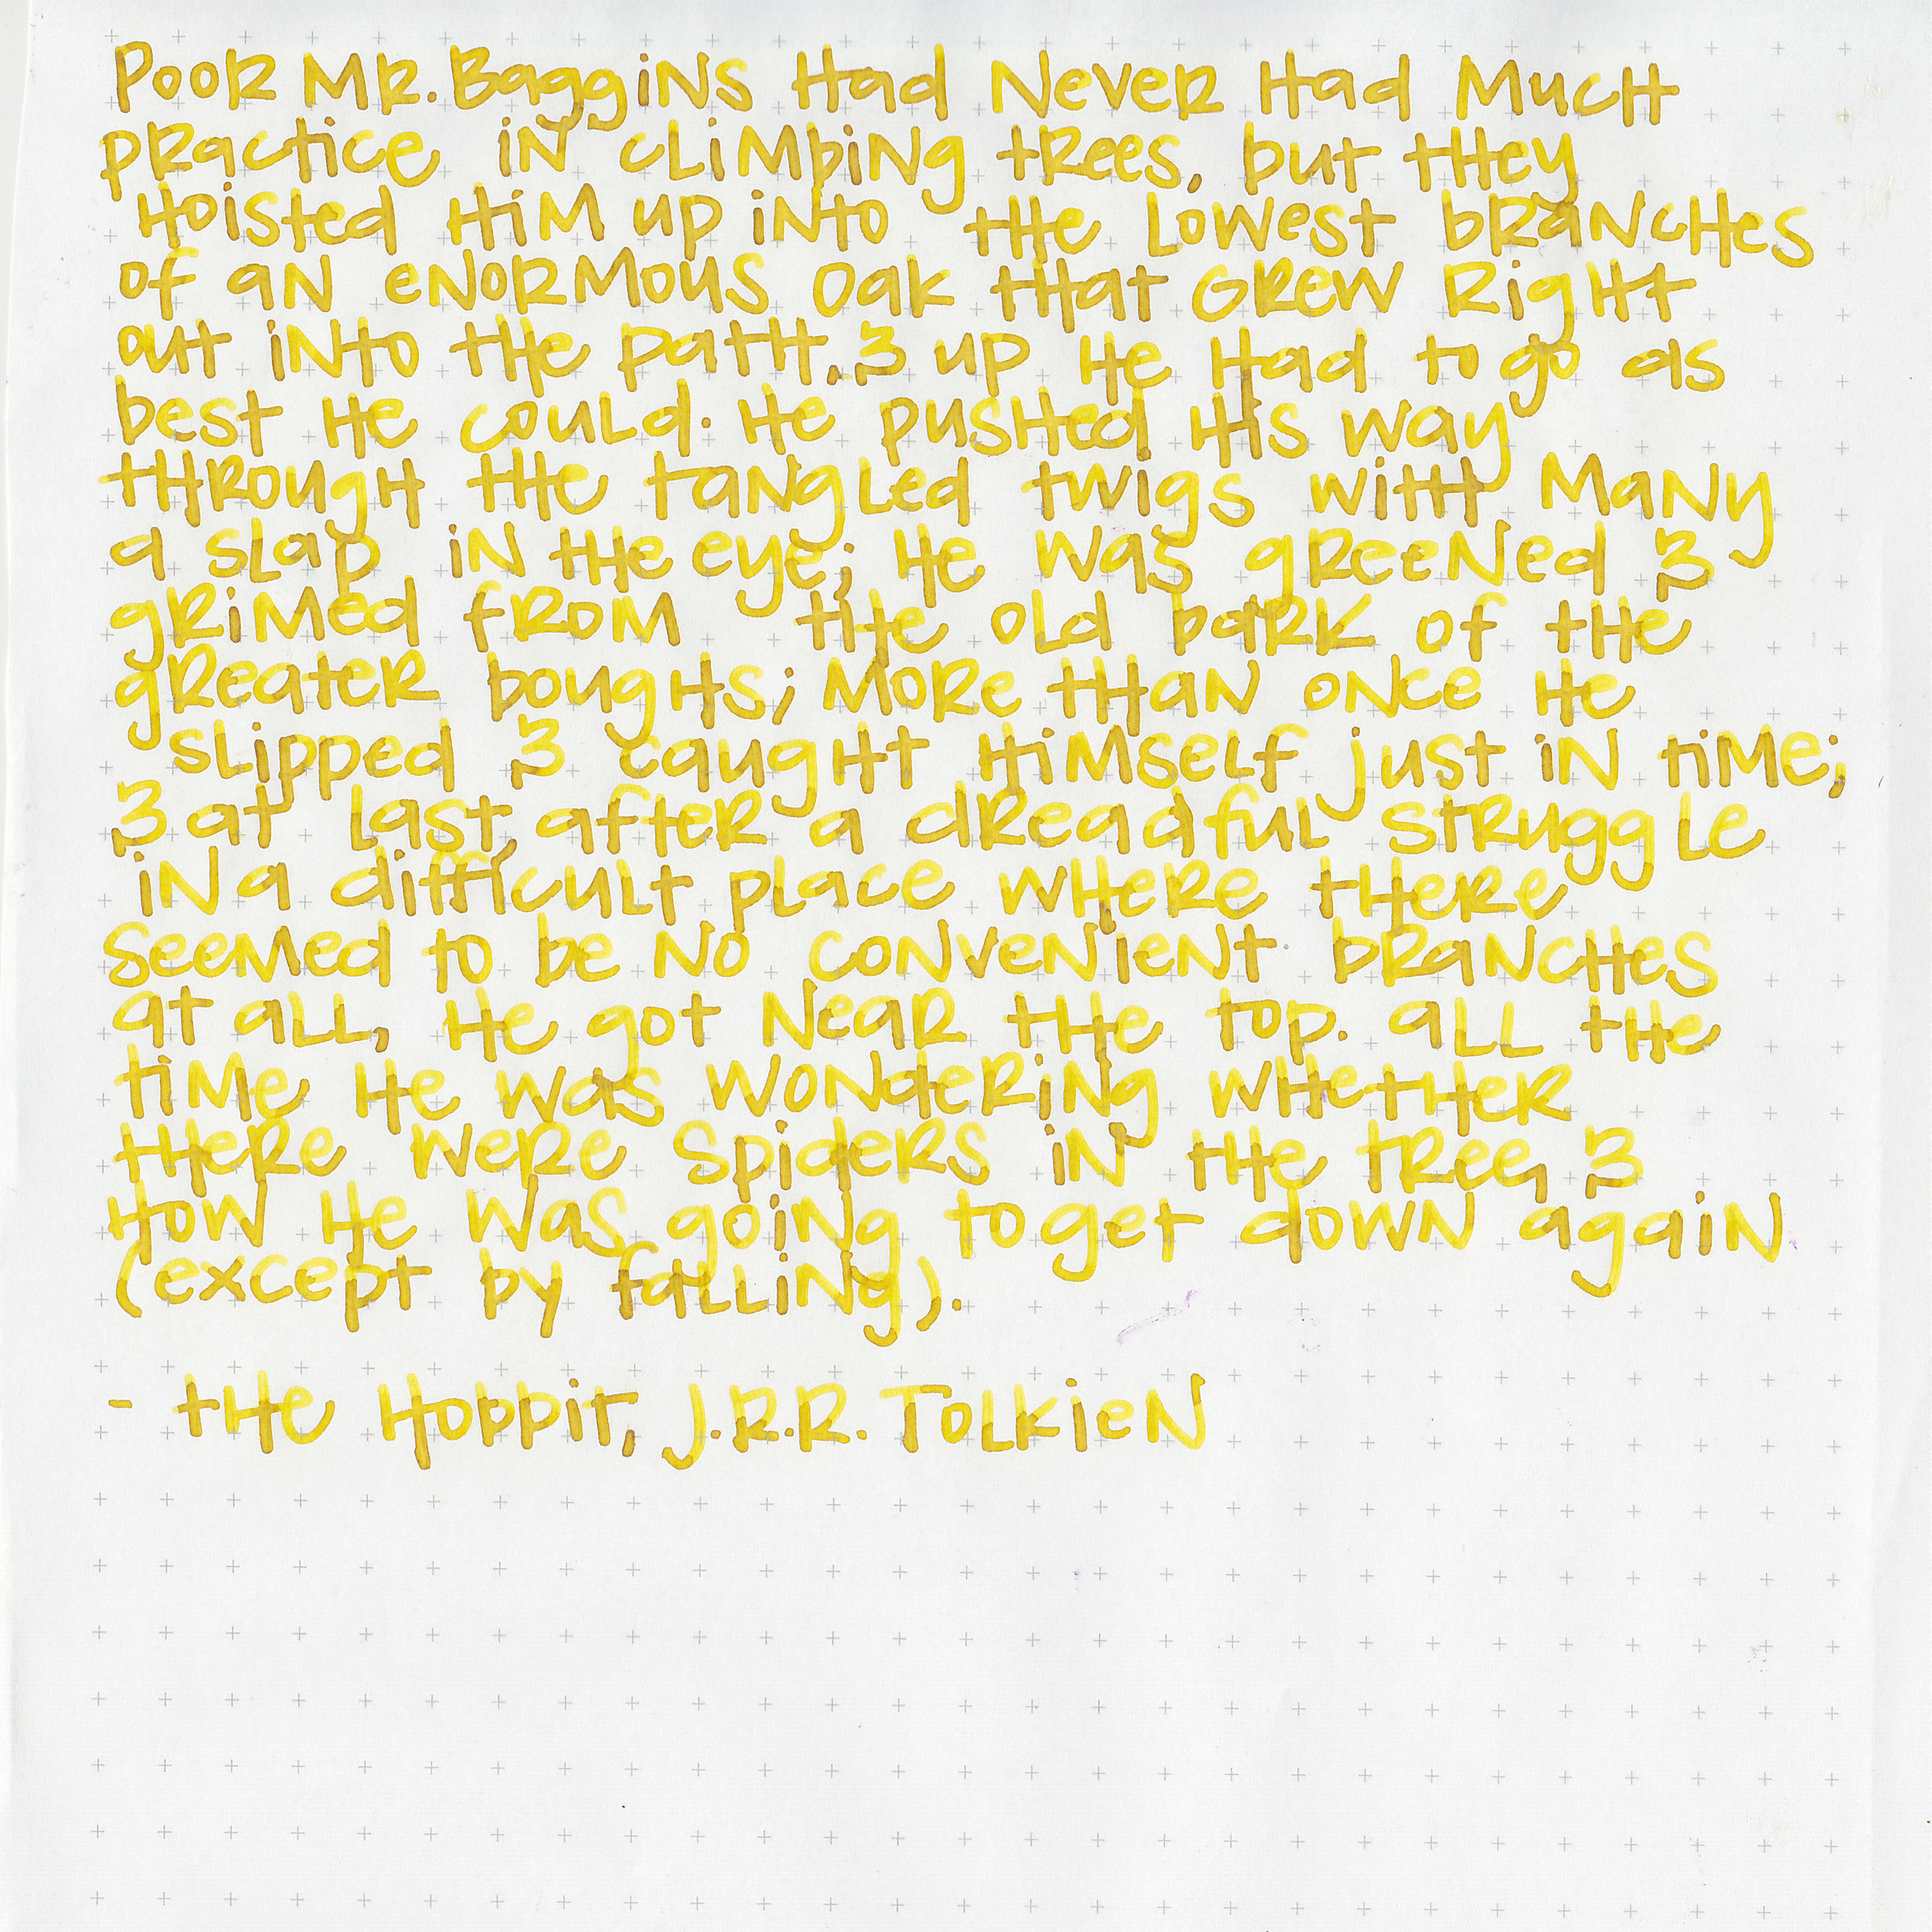 Poor Mr. Baggins had never had much
practice in climbing trees, but they
hoisted him up into the lowest branches
of an enormous oak that grew right
out into the path, & up he had to go as
best he could. He pushed his way
through the tangled twigs with many
a slap in the eye; he was greened &
grimed from the old bark of the
greater boughs; more than once he
slipped & caught himself just in time;
& at last, after a dreadful struggle
in a difficult place where there
seemed to be no convenient branches
at all, he got near the top. all the
time he was wondering whether
there were spiders in the tree, &
how he was going to get down again
(except by falling).
- the Hobbit, J.R.R. Tolkien